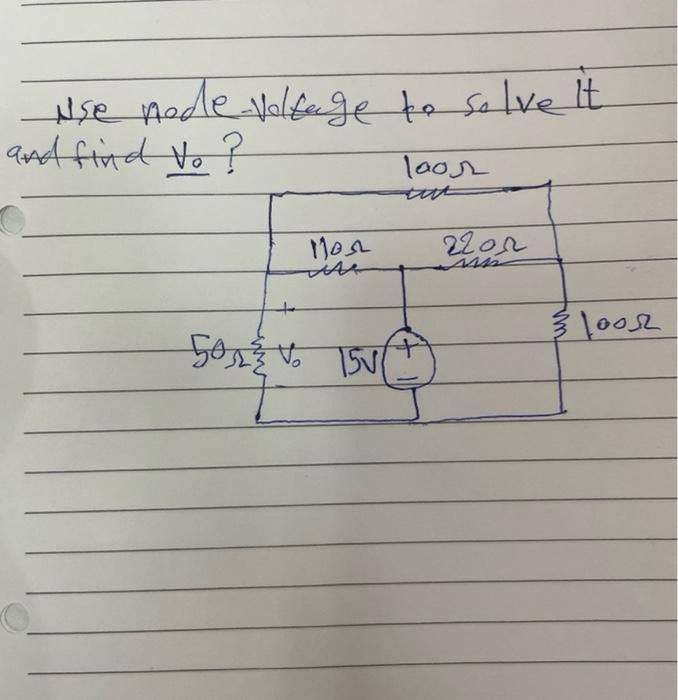 Use node-Voltage to solve it
and find Vo ?
100Ω
110Ω 220Ω
+
50Ω Vo 15V + 100Ω
- −